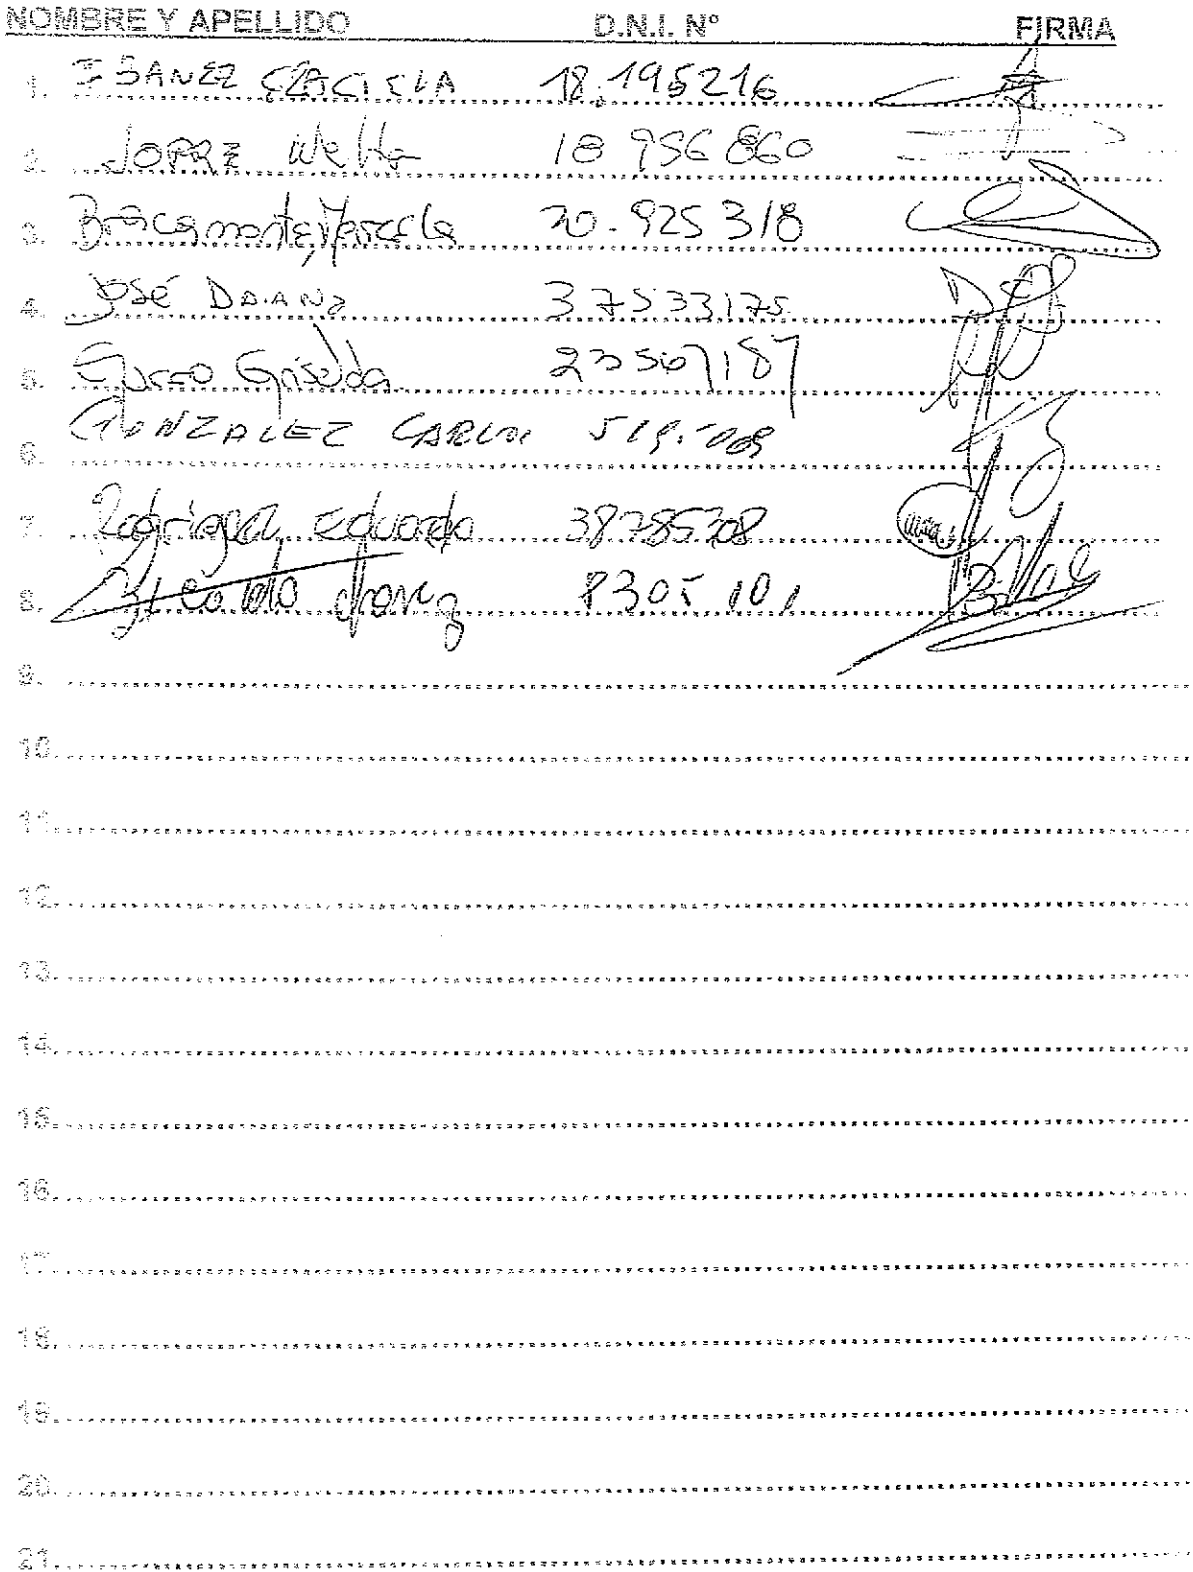 NOMBRE Y APELLIDO D.N.I. Nº FIRMA
1. IBANEZ GRACIELA 18.195216
2. JOFRE 18 956 860
3. Bracamonte, Marcela 20.925318
4. José DAIANA 37533175
5. Griselda 23567187
6. GONZALEZ CARLOS
7. Rodriguez Eduardo 38785308
8. 8305101
9.
10.
11.
12.
13.
14.
15.
16.
17.
18.
19.
20.
21.